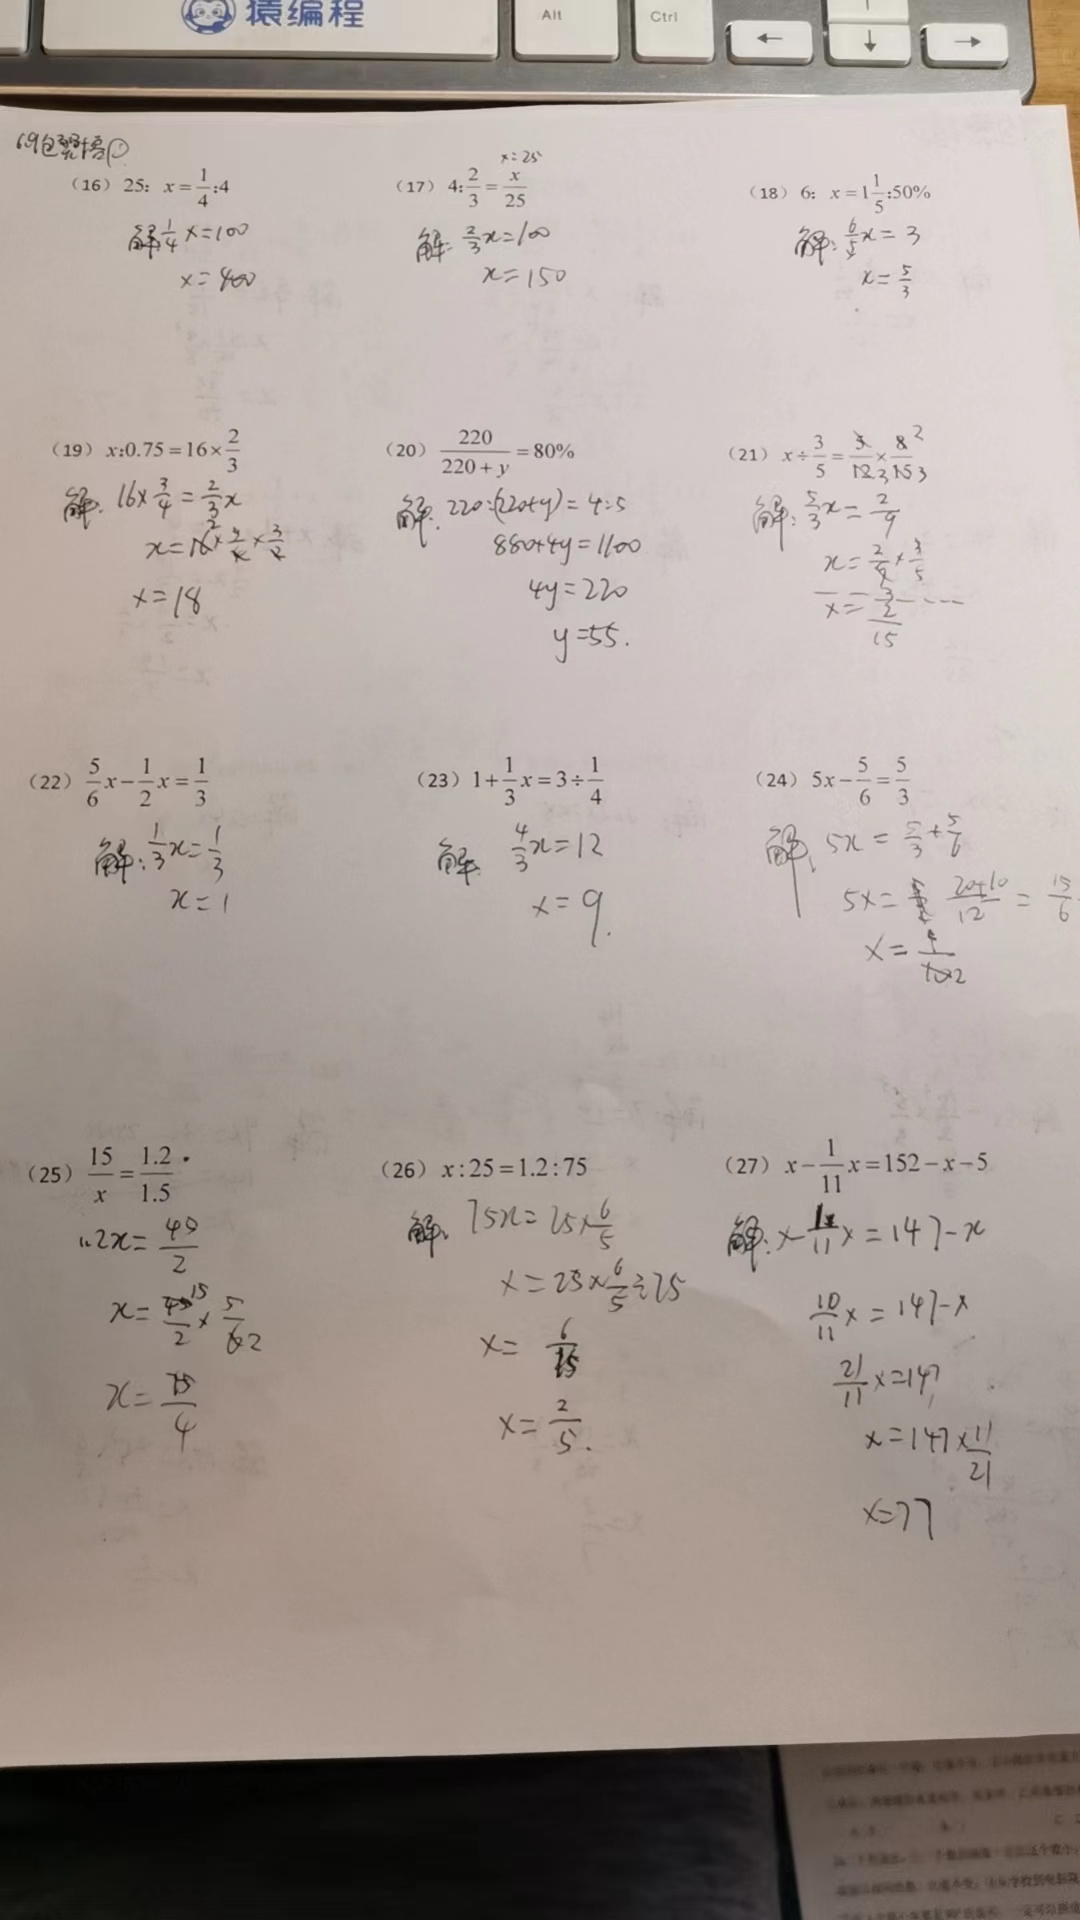 猿编程
Alt
Ctrl
←
↑
↓
→
(16) 25: x = 1/4 :4
解 1/4 x=100
x=400
x=25
(17) 4: 2/3 = x/25
解: 2/3 x=100
x=150
(18) 6: x = 1 1/5 :50%
解: 6/5 x = 3
x = 5/3
(19) x:0.75 = 16× 2/3
解: 16× 3/4 = 2/3 x
x= 16 2 × 3/4 × 3/2
x=18
(20) 220/(220+y) = 80%
解: 220:(220+y) = 4:5
880+4y=1100
4y=220
y=55.
(21) x÷ 3/5 = 5/12 3 × 8 2/15 3
解: 5/3 x= 2/9
x= 2/9 × 3/5
x= 2/15
(22) 5/6 x − 1/2 x = 1/3
解: 1/3 x= 1/3
x=1
(23) 1+ 1/3 x = 3÷ 1/4
解 4/3 x=12
x=9.
(24) 5x− 5/6 = 5/3
解: 5x = 5/3 + 5/6
5x= (20+10)/12 = 15/6
x= 1/2
(25) 15/x = 1.2/1.5
1.2x= 45/2
x= 45 15/2 × 5/6 2
x= 75/4
(26) x:25=1.2:75
解: 75x=25× 6/5
x=25× 6/5 ÷75
x= 6/15
x= 2/5.
(27) x− 1/11 x=152−x−5
解: x− 1/11 x=147−x
10/11 x=147−x
21/11 x=147
x=147× 11/21
x=77